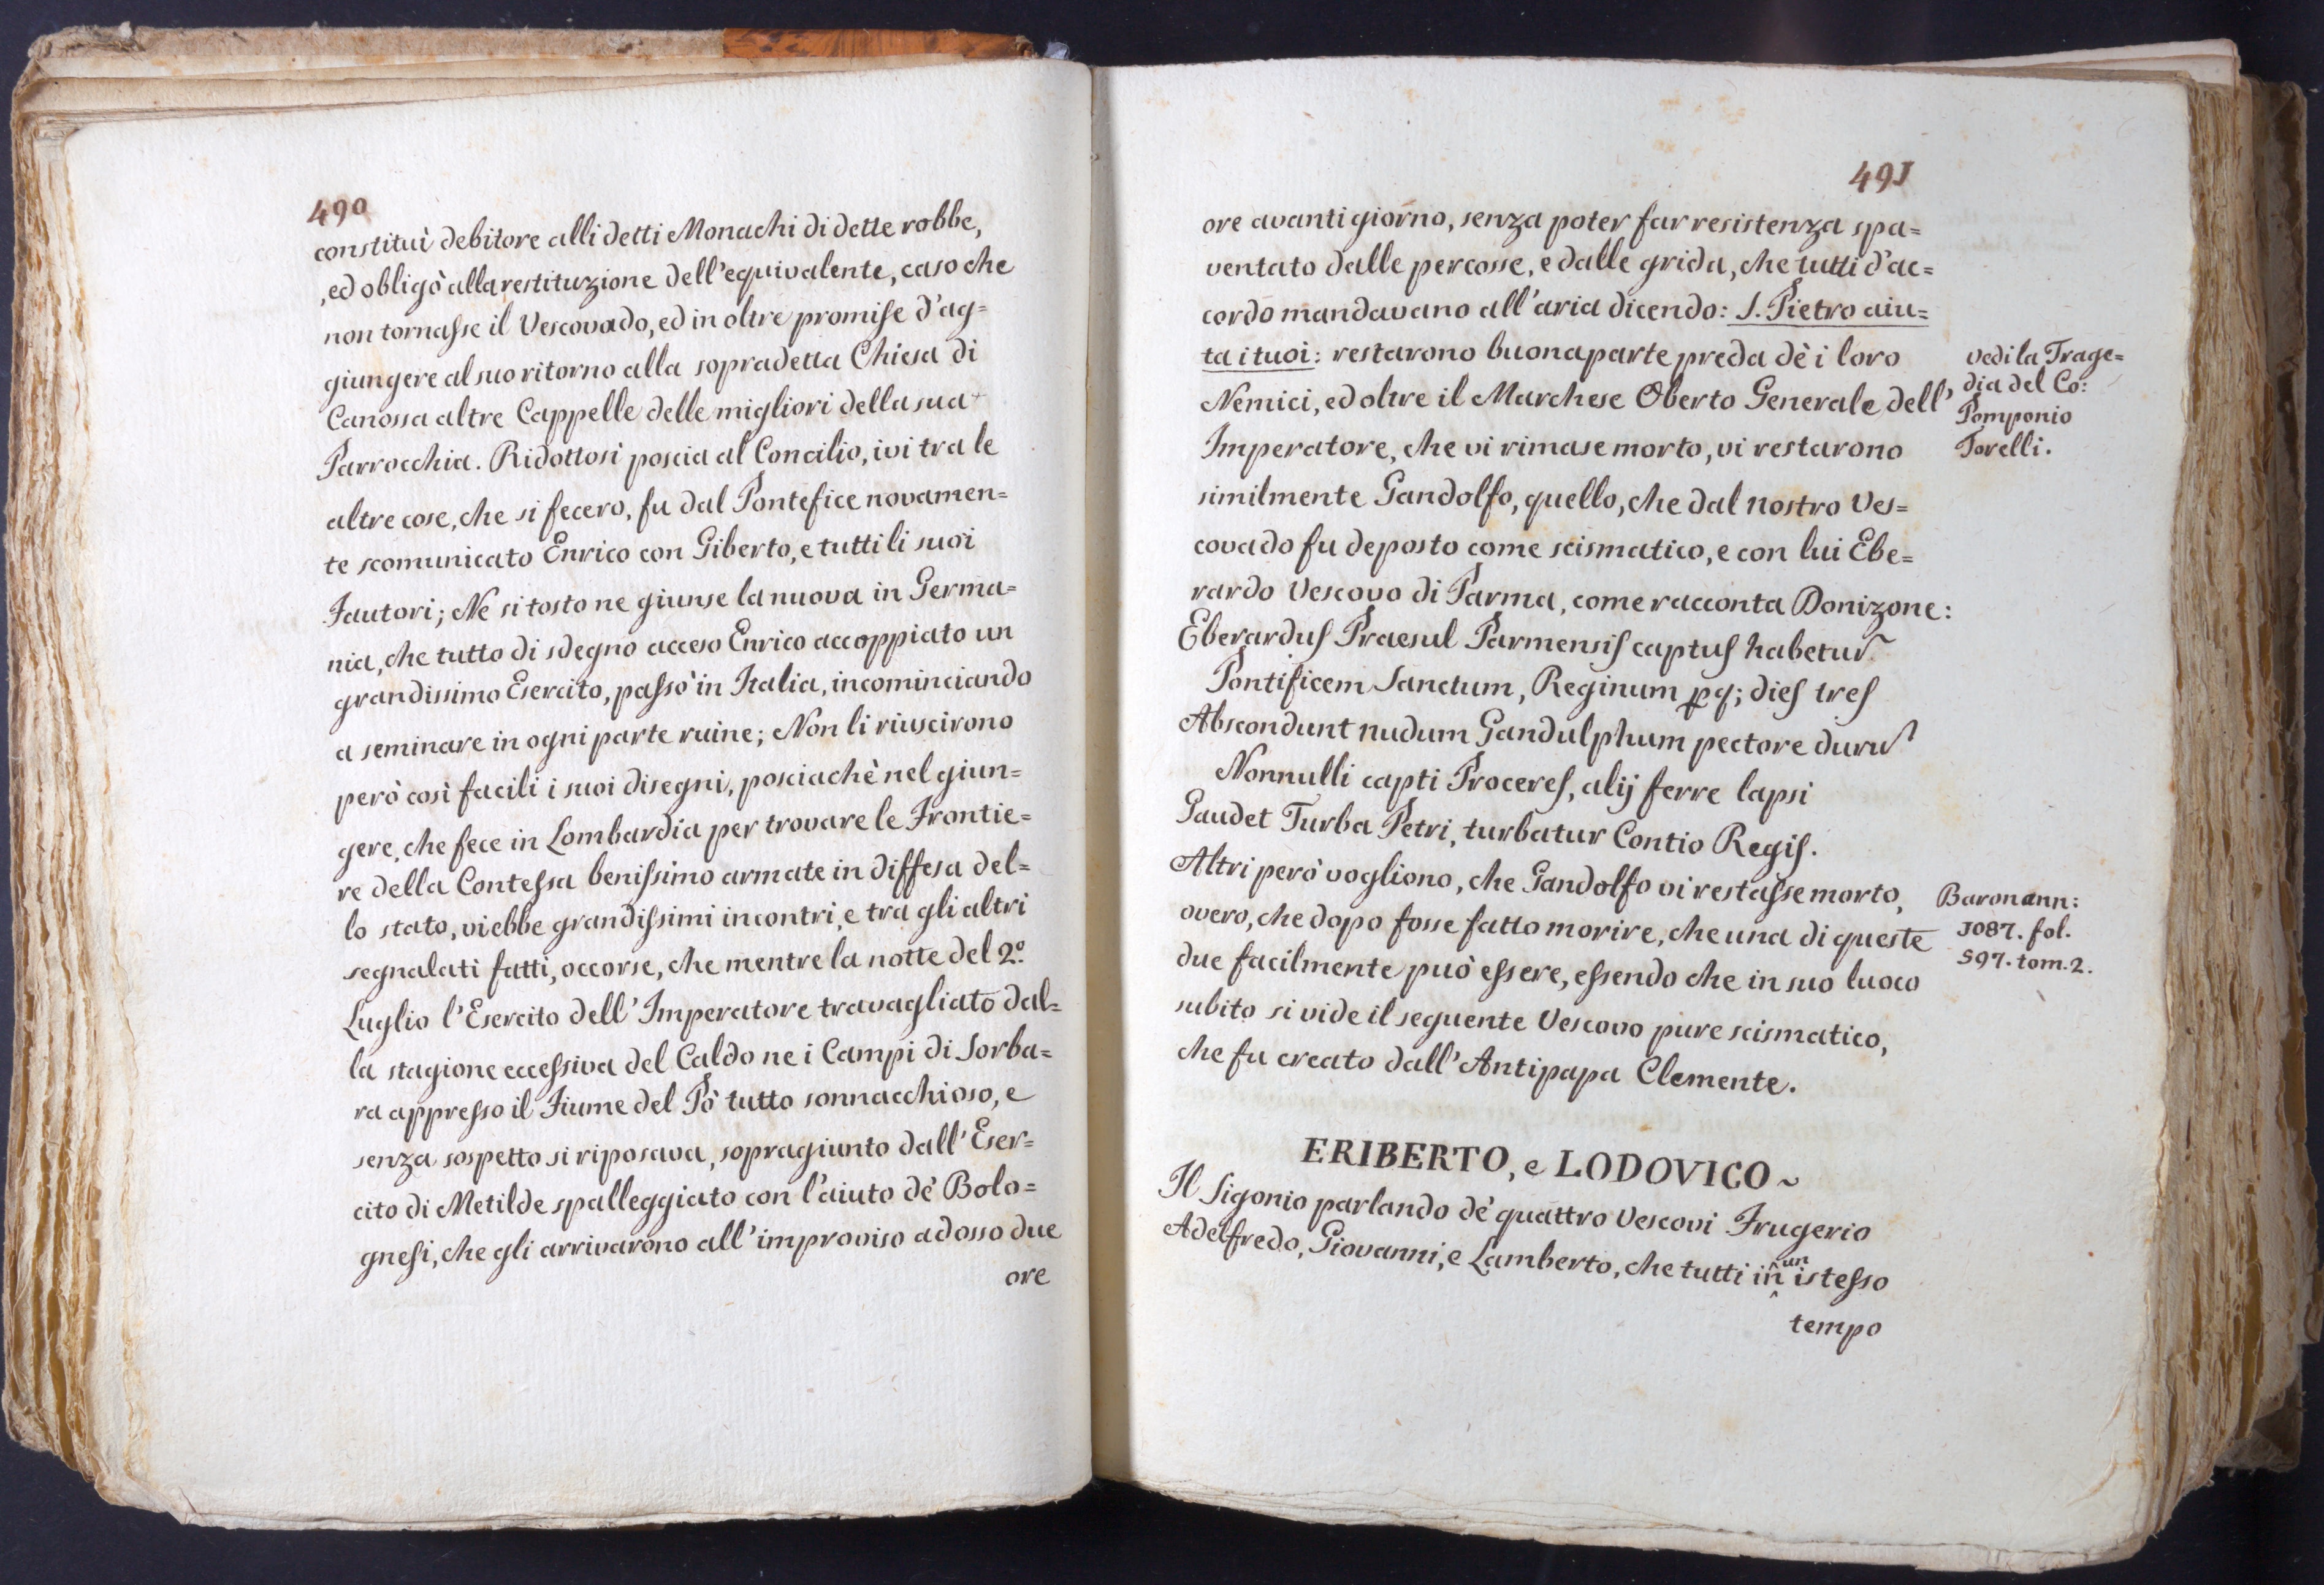 490
constitui debitore alli detti Monachi di dette robbe,
, ed obligò alla restituzione dell'equivalente, caso che
non tornaſse il Vescovado, ed in oltre promiſe d'ag=
giungere al suo ritorno alla sopradetta Chiesa di
Canossa altre Cappelle delle migliori della sua
Parrocchia. Ridottosi poscia al Concilio, ivi tra le
altre cose, che si fecero, fu dal Pontefice novamen=
te scomunicato Enrico con Giberto, e tutti li suoi
Fautori; Ne si tosto ne giunse la nuova in Germa=
nia, che tutto di sdegno acceso Enrico accoppiato un
grandissimo Esercito, paſsò in Italia, incominciando
a seminare in ogni parte ruine; Non li riuscirono
però così facili i suoi disegni, posciachè nel giun=
gere, che fece in Lombardia per trovare le Frontie=
re della Conteſsa beniſsimo armate in diffesa del=
lo stato, vi ebbe grandiſsimi incontri, e tra gli altri
segnalati fatti, occorse, che mentre la notte del 2.º
Luglio l'Esercito dell'Imperatore travagliato dal=
la stagione ecceſsiva del Caldo ne i Campi di Sorba=
ra appreſso il Fiume del Pò tutto sonnacchioso, e
senza sospetto si riposava, sopragiunto dall'Eser=
cito di Metilde spalleggiato con l'aiuto de' Bolo=
gneſi, che gli arrivarono all'improviso adosso due
ore
491
ore avanti giorno, senza poter far resistenza spa=
ventato dalle percosse, e dalle grida, che tutti d'ac=
cordo mandavano all'aria dicendo: S. Pietro aiu=
ta i tuoi: restarono buona parte preda dè i loro
Nemici, ed oltre il Marchese Oberto Generale dell'
Imperatore, che vi rimase morto, vi restarono
similmente Gandolfo, quello, che dal nostro Ves=
covado fu deposto come scismatico, e con lui Ebe=
rardo Vescovo di Parma, come racconta Donizone:
Eberarduſ Praesul Parmensiſ captuſ habetur
Pontificem Sanctum, Reginum ꝑq; dieſ treſ
Abscondunt nudum Gandulphum pectore duru
Nonnulli capti Procereſ, alij ferre lapsi
Gaudet Turba Petri, turbatur Contio Regiſ.
Altri però vogliono, che Gandolfo vi restaſse morto,
overo, che dopo fosse fatto morire, che una di queste
due facilmente può eſsere, eſsendo che in suo luoco
subito si vide il seguente Vescovo pure scismatico,
che fu creato dall'Antipapa Clemente.
vedi la Trage=
dia del Co:
Pomponio
Torelli.
Baron ann:
1087. fol.
597. tom. 2.
ERIBERTO, e LODOVICO ~
Il Sigonio parlando dè quattro Vescovi Frugerio
Adelfredo, Giovanni, e Lamberto, che tutti in un isteſso
tempo